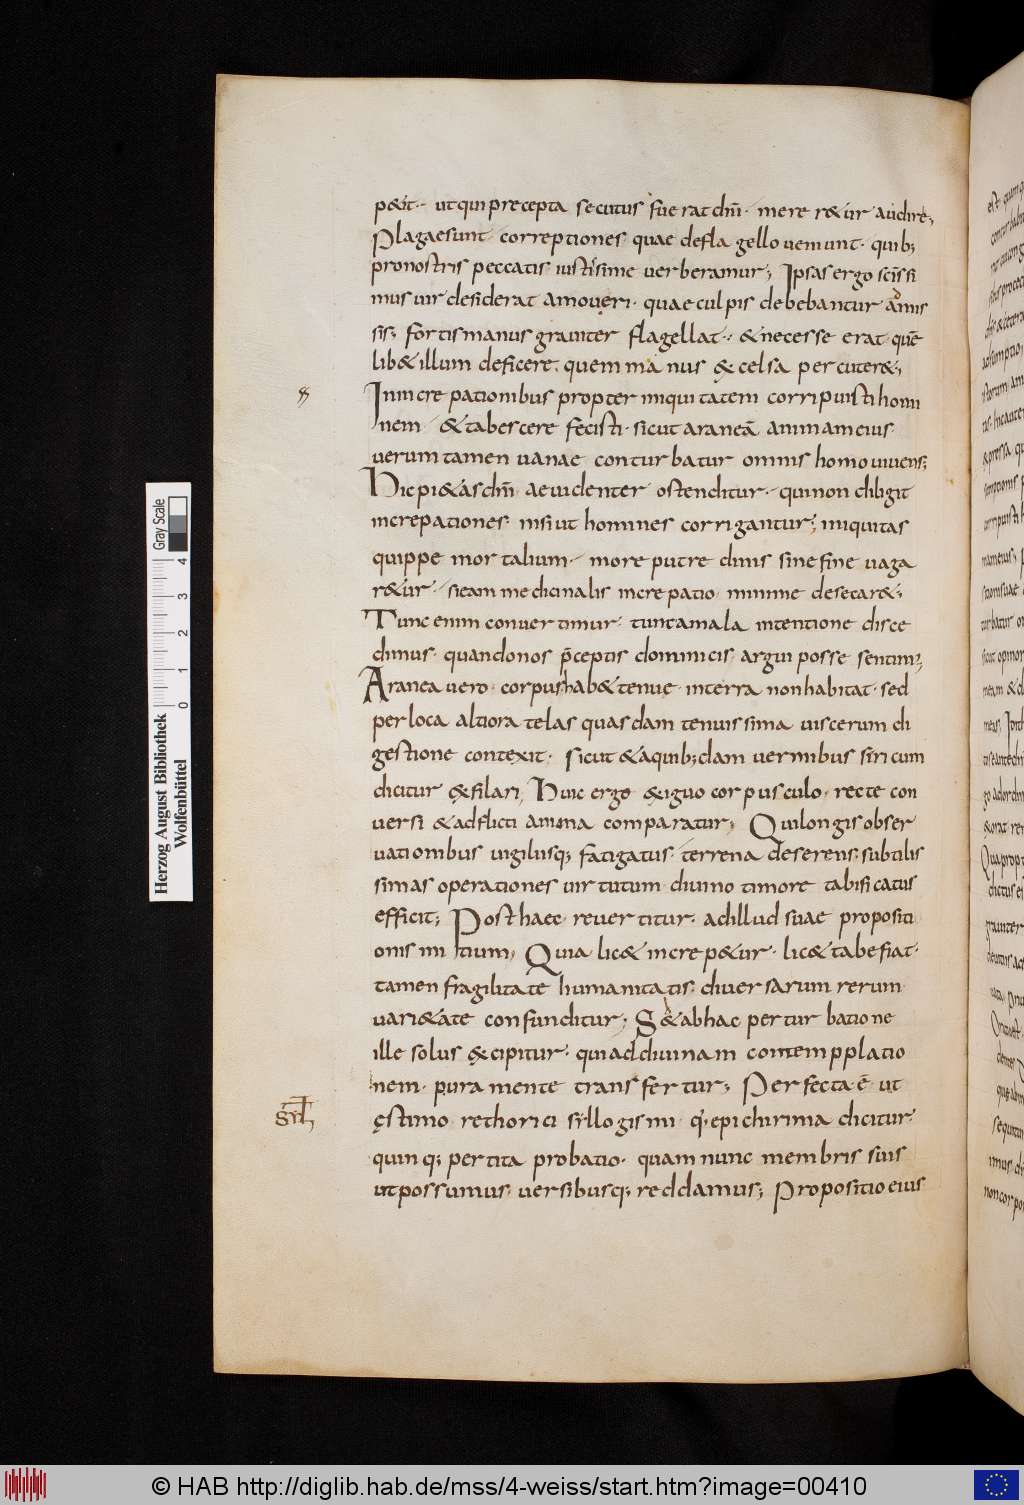 p&it· ut qui precepta secutus fuerat dn̄i· mereretur audire;
Plagae sunt correptiones quae de flagello veniunt· quib;
pro nostris peccatis iustisime verberamur; Ipsas ergo scissi
mus vir desiderat amoveri· quae culpis debebantur amis
sis; fortis manus graviter flagellat·· & necesse erat quē
lib& illum deficere· quem manus ęxcelsa percuter&;
In increpationibus propter iniquitatem corripuisti homi
nem· & tabescere fecisti· sicut araneā animam eius·
verumtamen vanae conturbatur omnis homo vivens;
Hic pi&as dn̄i· aevidenter ostenditur· qui non diligit
increpationes· nisi ut homines corrigantur; iniquitas
quippe mortalium· more putredinis sine fine vaga
r&ur· si eam medicinalis increpatio minime desecar&;
Tunc enim convertimur· tunc a mala intentione disce
dimus· quando nos p̄ceptis dominicis argui posse sentim;
Aranea vero· corpus hab& tenue· in terra non habitat· sed
per loca altiora telas quasdam tenuissima viscerum di
gestione contexit· sicut & a quib;dam vermibus siricum
dicitur ęt filari; Huic ergo &iguo corpusculo· recte con
versi & adflicti anima comparatur; Qui longis obser
vationibus vigiliisq; fatigatus· terrena deserens, subtilis
simas operationes virtutum divino timore tabificatus
efficit; Post haec revertitur· ad illud suae propositi
onis initium; Quia lic& increp&ur· lic& tabefiat·
tamen fragilitate humanitatis· diversarum rerum·
vari&ate confunditur; S& ab hac perturbatione
ille solus ęxcipitur· qui ad divinam contempplatio
nem· pura mente transfertur; Perfecta ē ut
ęstimo rethorici syllogismi q̇ epichirima dicitur·
quinq; pertita probatio· quam nunc membris suis
ut possumus versibusq; reddamus; Propositio eius
Herzog August Bibliothek
Wolfenbüttel
0 1 2 3 4
Gray Scale
© HAB http://diglib.hab.de/mss/4-weiss/start.htm?image=00410